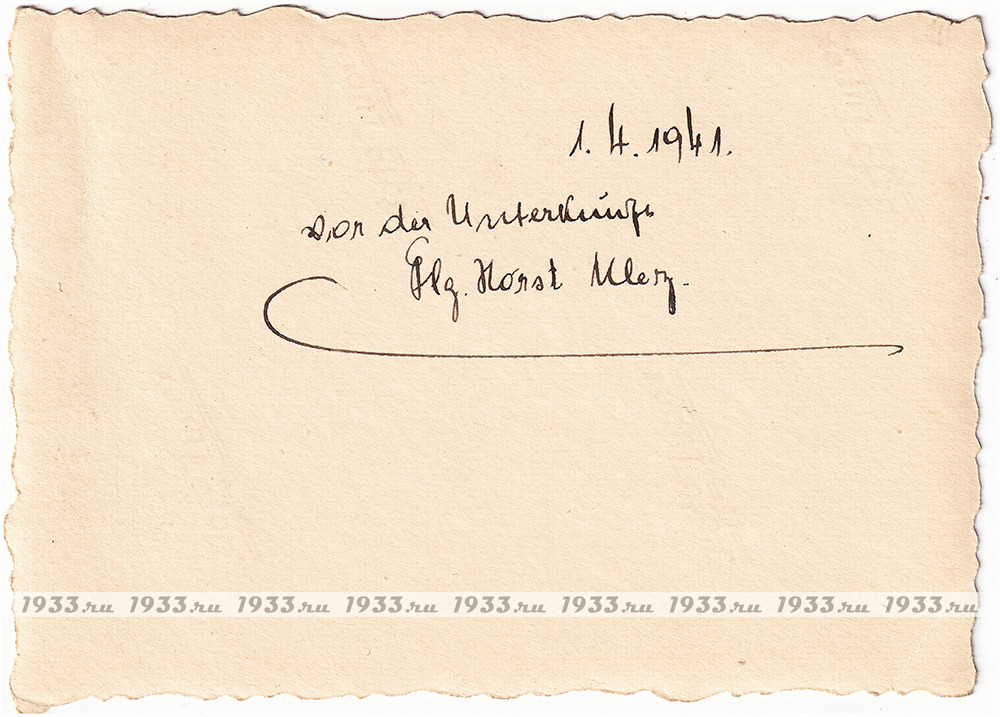 1.4.1941.
vor der Unterkunft
Flg. Horst Merz.
1933.ru 1933.ru 1933.ru 1933.ru 1933.ru 1933.ru 1933.ru 1933.ru 1933.ru